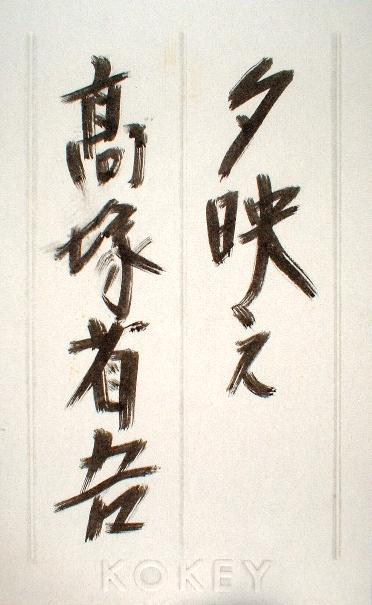 夕映え
髙塚省吾
KOKEY